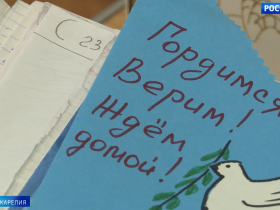 РОС
С 23
Гордимся
Верим!
Ждём
домой!
КАРЕЛИЯ